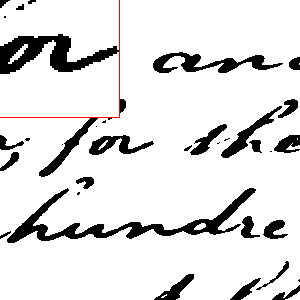 or an
for the
hundre